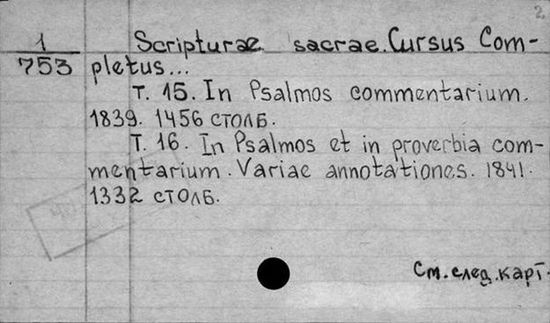 2.
1
753
Scripturae sacrae. Cursus Com-
pletus...
Т. 15. In Psalmos commentarium.
1839. 1456 столб.
Т. 16. In Psalmos et in proverbia com-
mentarium. Variae annotationes. 1841.
1332 столб.
См. след. карт.